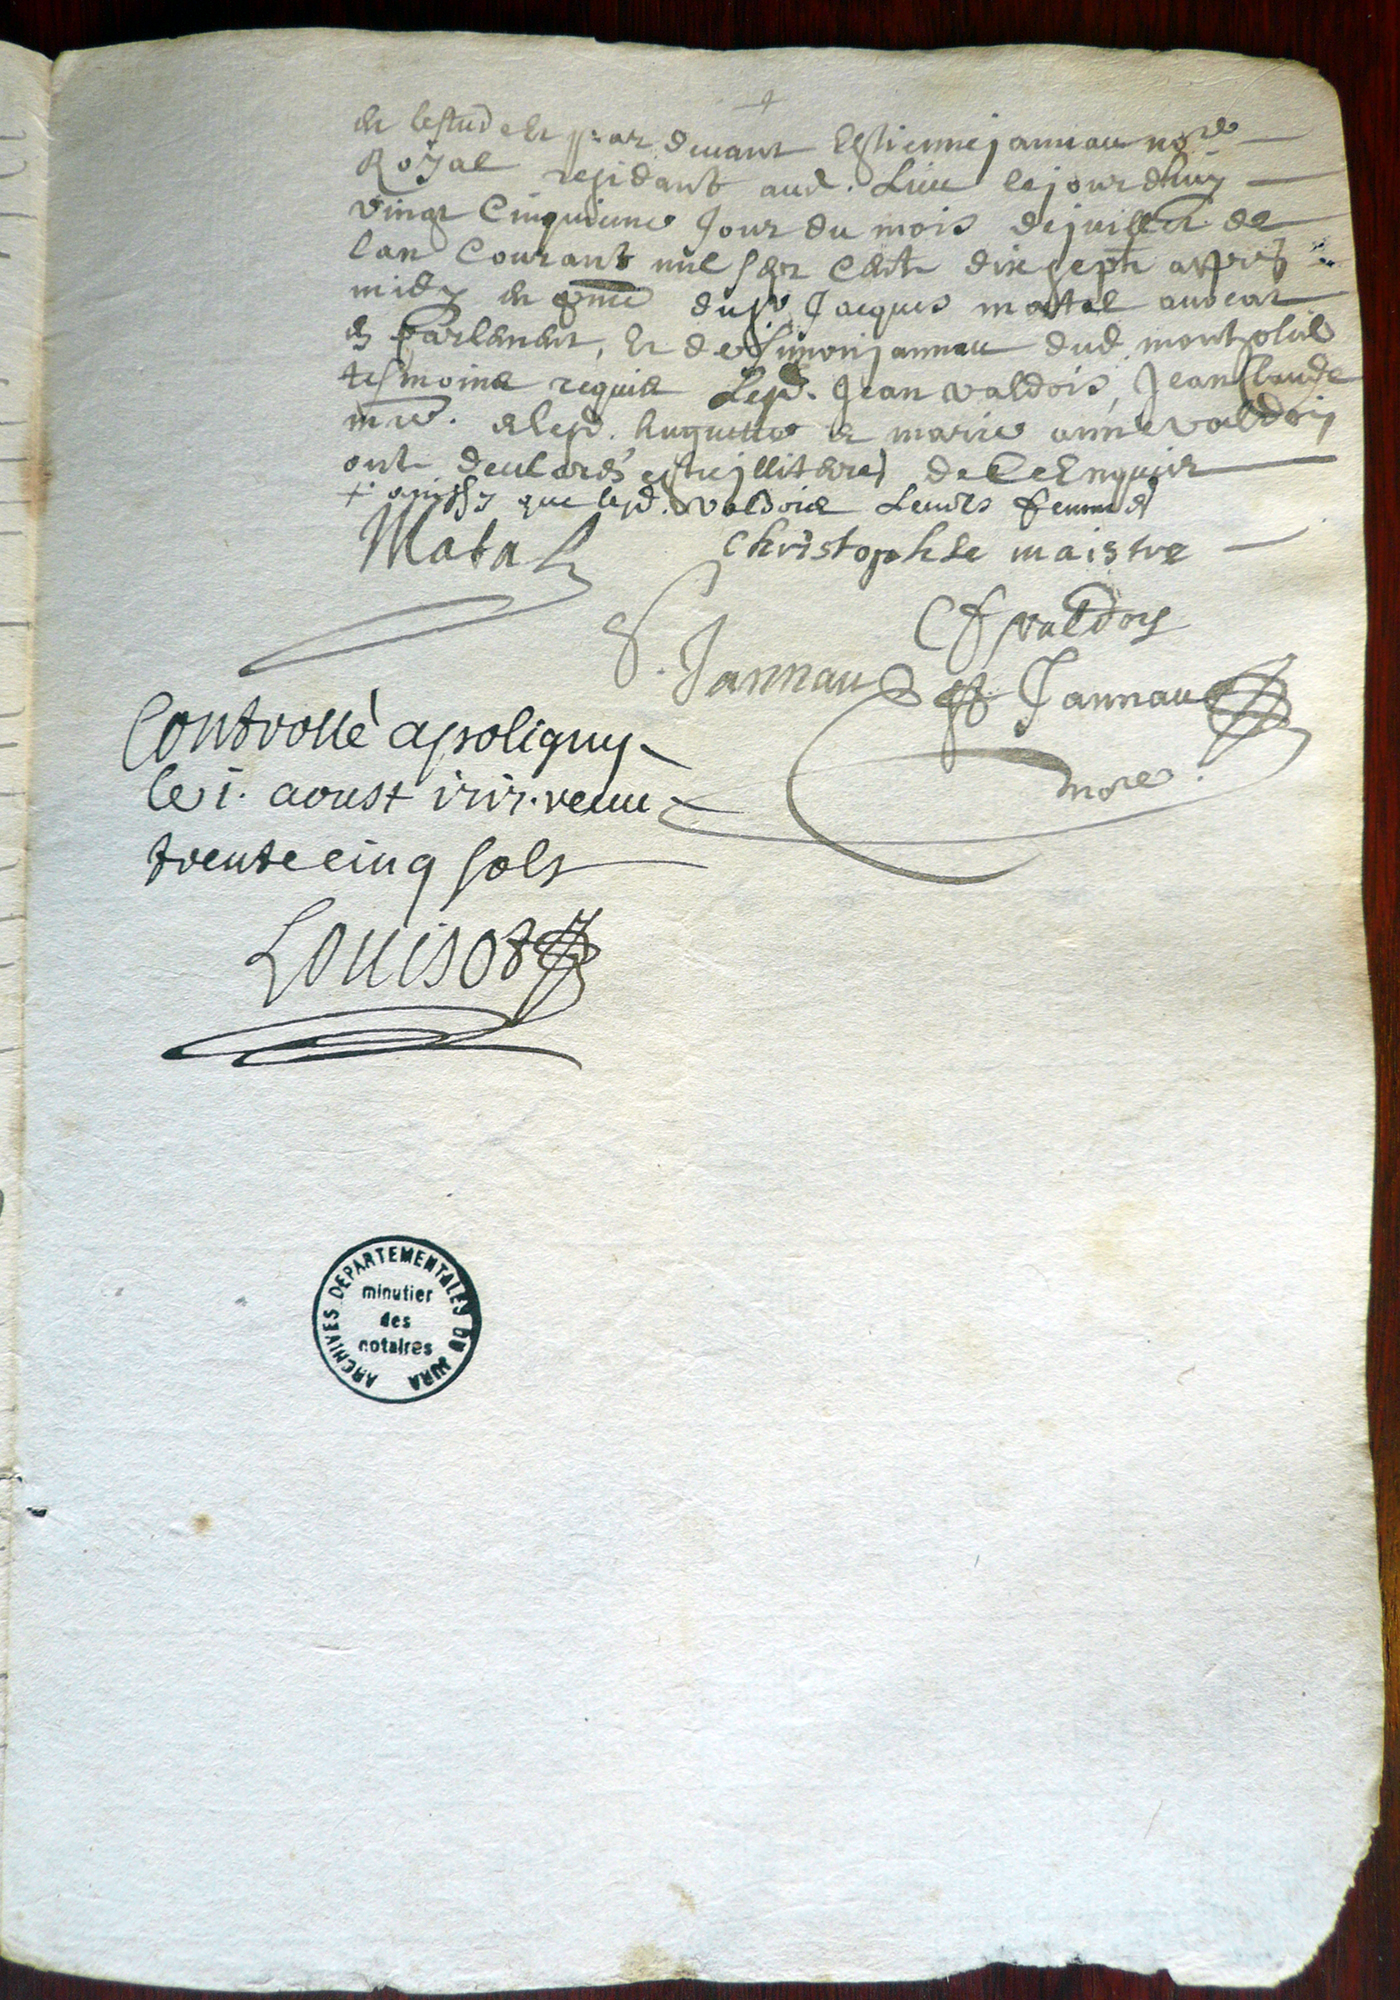 en lestude et par devant Estienne jannau no.re
Royal residant aud. Lieu lejourdhuy
vingt Cinquieme Jour du mois dejuillet de
lan Courant mil sept Cent dix sept appres
midy en pnce dusr Jacques matal advocat
en parlement, et de Simon jannau dud. montholie
tesmoins requis Lesd. Jean valdois, Jean Claude
mre. et lesd. huguette et marie anne valdois
ont declarés estre illiteres de ce Enquis
+ aussy que lesd. valdois Leurs femmes
Matal
Christophle maistre
C f valdoy
S. Jannau
E. Jannau
nore
Controllé apoligny
le 1. aoust 1717. receu
trente cinq sols
Louisot
ARCHIVES DEPARTEMENTALES DU JURA
minutier
des
notaires